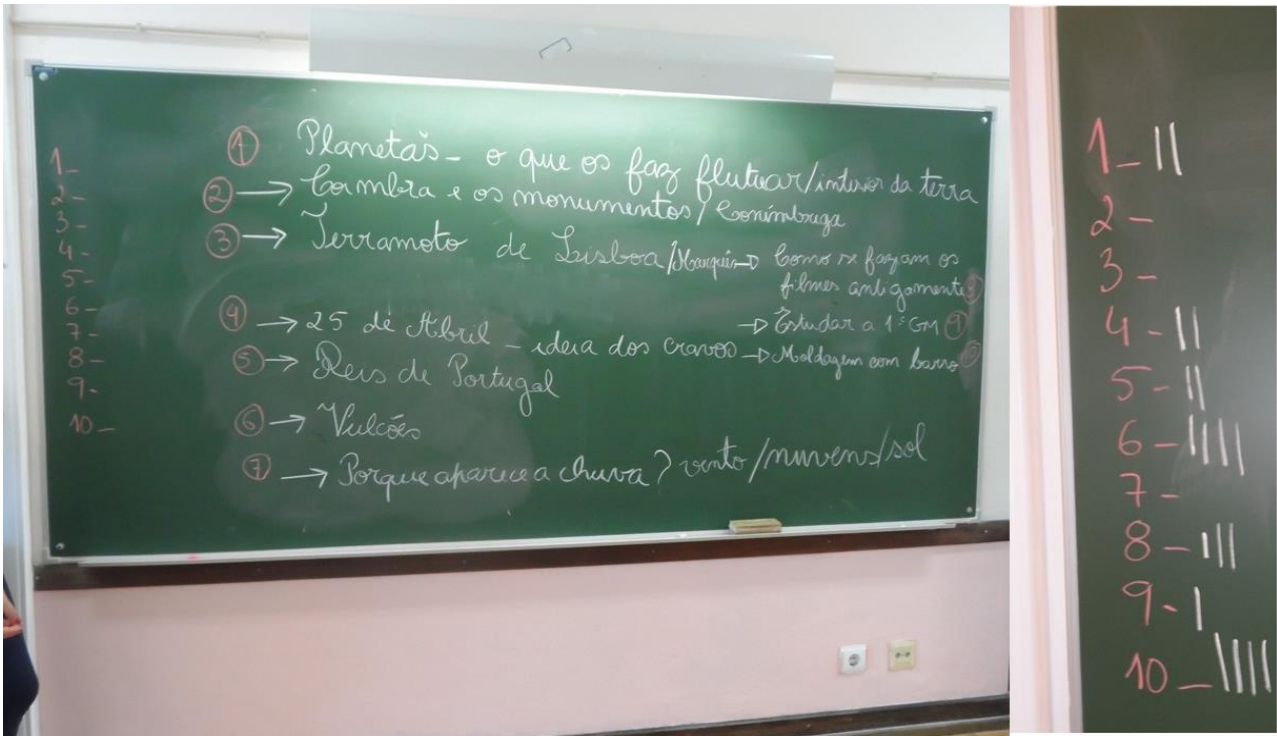 1-
2-
3-
4-
5-
6-
7-
8-
9-
10-
① Planetas - o que os faz flutuar/interior da terra
② → Coimbra e os monumentos/Conímbriga
③ → Terramoto de Lisboa/Marquês
→ Como se faziam os
filmes antigamente
④ → 25 de Abril - ideia dos cravos
→ Estudar a 1ª GM ⑨
⑤ → Reis de Portugal
→ Moldagem com barro
⑥ → Vulcões
⑦ → Porque aparece a chuva? vento/nuvens/sol
1- ||
2-
3-
4- ||
5- ||
6- ||||
7-
8- |||
9- |
10- ||||